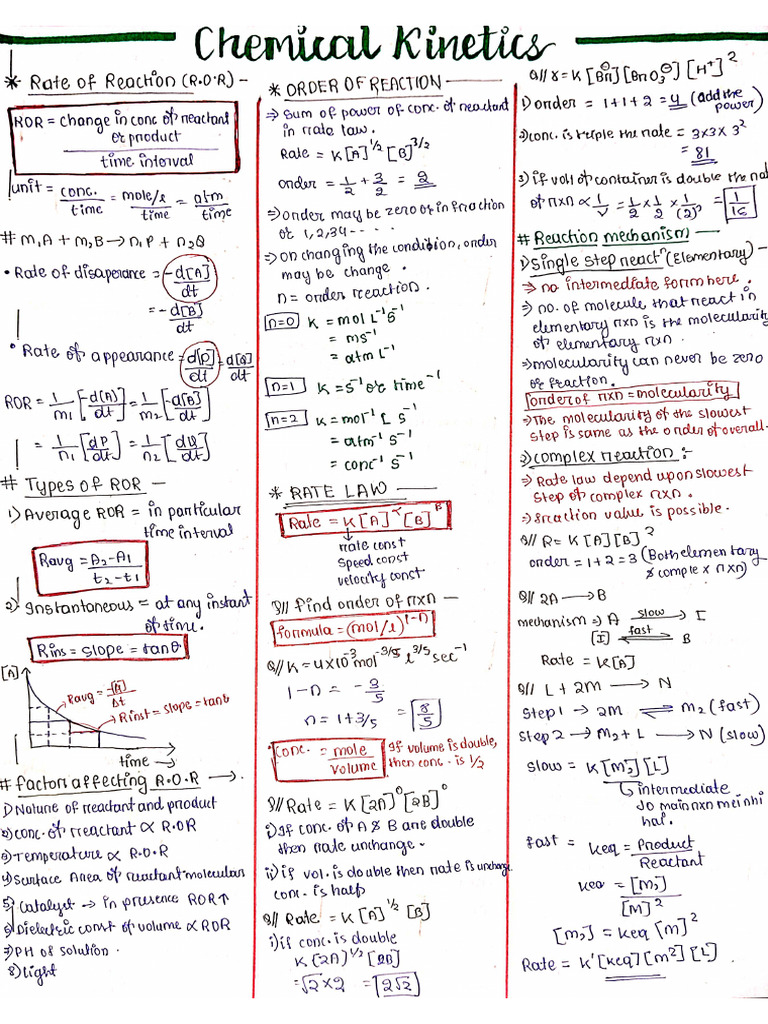 Chemical Kinetics
* Rate of Reaction (R.O.R) –
ROR = change in conc of reactant
or product
time interval
unit = conc. / time = mole/l / time = atm / time
# m₁A + m₂B → n₁P + n₂Q
• Rate of disaperance = -d[A] / dt
= -d[B] / dt
• Rate of appearance = d[P] / dt = d[Q] / dt
ROR = 1/m₁ [-d[A] / dt] = 1/m₂ [-d[B] / dt]
= 1/n₁ [dP / dt] = 1/n₂ [dQ / dt]
# Types of ROR —
1) Average ROR = in particular
time interval
Ravg = A₂-A₁ / t₂-t₁
2) Instantaneous = at any instant
of time.
Rins = slope = tanθ
[A]
Ravg = -[A] / Δt
Rinst = slope = tanθ
time →
# factors affecting R.O.R →
1) Nature of reactant and product
2) conc. of reactant ∝ R.O.R
3) Temperature ∝ R.O.R
4) Surface Area of reactant molecular
5) Catalyst → in presence ROR↑
6) Dielectric const of volume ∝ ROR
7) PH of solution.
8) light
* ORDER OF REACTION —
⇒ Sum of power of conc. of reactant
in rate law.
Rate = K[A]^1/2 [B]^3/2
order = 1/2 + 3/2 = 2
⇒ order may be zero or in fraction
or 1,2,34 - - - -
⇒ on changing the condition, order
may be change.
n = order reaction.
n=0 K = mol L⁻¹ S⁻¹
= ms⁻¹
= atm L⁻¹
n=1 K = S⁻¹ or time⁻¹
n=2 K = mol⁻¹ L S⁻¹
= atm⁻¹ S⁻¹
= conc⁻¹ S⁻¹
* RATE LAW —
Rate = K[A]^α [B]^β
rate const
speed const
velocity const
Q// find order of rxn —
formula = (mol/l)^(1-n)
Q// K = 4×10⁻³ mol^-3/5 l^3/5 sec⁻¹
1-n = -3/5
n = 1+3/5 = 8/5
* conc. = mole / volume
If volume is double,
then conc. is 1/2
Q// Rate = K[2A]⁰ [2B]⁰
i) If conc. of A & B are double
then rate unchange.
ii) if vol. is double then rate is unchange
conc. is half
Q// Rate = K[A]^1/2 [B]
i) if conc. is double
K[2A]^1/2 [2B]
= √2×2 = 2√2
Q// r = K[Br⊖][BrO₃⊖][H⁺]²
1) order = 1+1+2 = 4 (add the
power)
2) conc. is triple the rate = 3×3×3²
= 81
3) if vol of container is double the rate
of rxn ∝ 1/V = 1/2 × 1/2 × 1/(2)² = 1/16
# Reaction mechanism —
1) Single step reactⁿ (Elementary) –
⇒ no intermediate form here.
⇒ no. of molecule that react in
elementary rxn is the molecularity
of elementary rxn.
⇒ molecularity can never be zero
or fraction.
order of rxn = molecularity
⇒ The molecularity of the slowest
step is same as the order of overall.
2) complex reaction :-
⇒ Rate law depend upon slowest
step of complex rxn.
⇒ fraction value is possible.
Q// R = K[A][B]²
order = 1+2 = 3 (Both elementary
& complex rxn)
Q// 2A → B
mechanism ⇒ A slow → I
[I] fast ⇌ B
Rate = K[A]
Q// L + 2M → N
Step 1 → 2M ⇌ M₂ (fast)
Step 2 → M₂ + L → N (slow)
slow = K[M₂][L]
intermediate
Jo main rxn mei nhi
hai.
fast = Keq = Product / Reactant
Keq = [M₂] / [M]²
[M₂] = Keq [M]²
Rate = K'[Keq][M²][L].